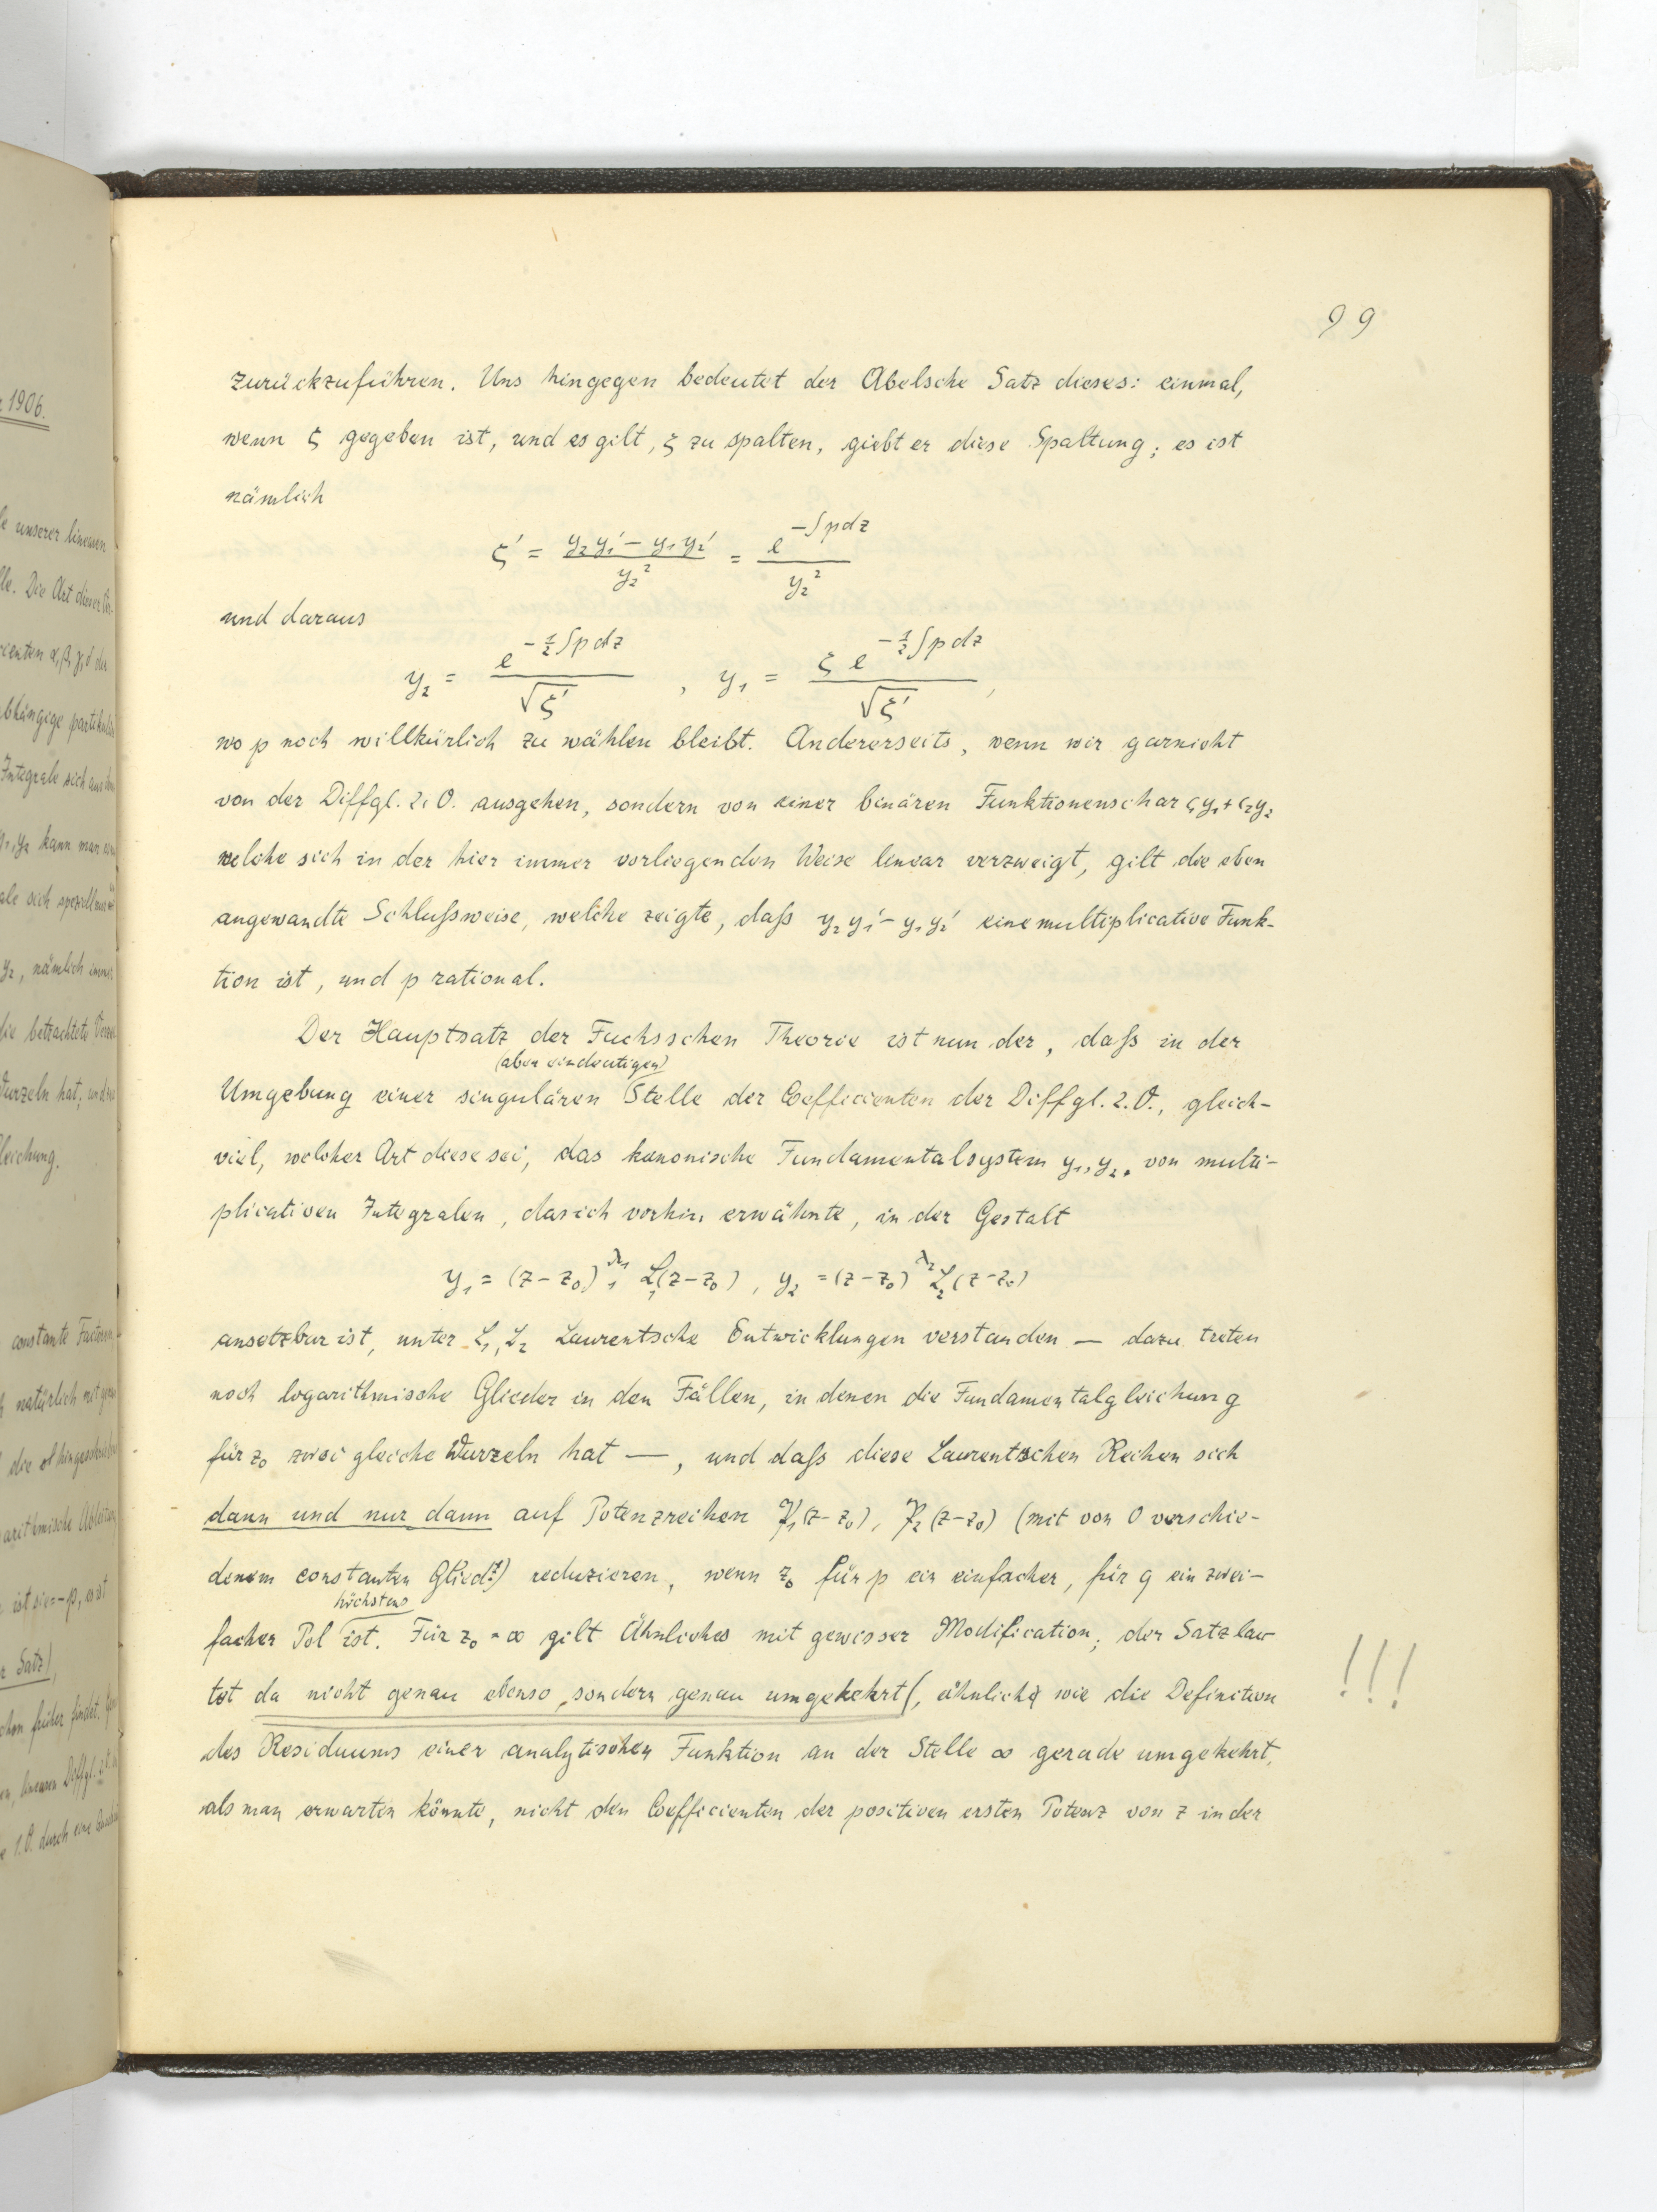 99
zurückzuführen. Uns hingegen bedeutet der Abelsche Satz dieses: einmal,
wenn ζ gegeben ist, und es gilt, ζ zu spalten, giebt er diese Spaltung; es ist
nämlich
ζ' = (y₂y₁' − y₁y₂')/y₂² = e^(−∫pdz)/y₂²
und daraus
y₂ = e^(−½∫pdz)/√ζ' , y₁ = ζe^(−½∫pdz)/√ζ',
wo p noch willkürlich zu wählen bleibt. Andererseits, wenn wir garnicht
von der Diffgl. 2. O. ausgehen, sondern von einer binären Funktionenschar c₁y₁+c₂y₂
welche sich in der hier immer vorliegenden Weise linear verzweigt, gilt die eben
angewandte Schlußweise, welche zeigte, daß y₂y₁' − y₁y₂' eine multiplicative Funk-
tion ist, und p rational.
Der Hauptsatz der Fuchsschen Theorie ist nun der, daß in der
(aber eindeutigen)
Umgebung einer singulären Stelle der Coefficienten der Diffgl. 2. O., gleich-
viel, welcher Art diese sei, das kanonische Fundamentalsystem y₁, y₂, von multi-
plicativen Integralen, das ich vorhin erwähnte, in der Gestalt
y₁ = (z−z₀)^λ₁ L₁(z−z₀), y₂ = (z−z₀)^λ₂ L₂(z−z₀)
ansetzbar ist, unter L₁, L₂ Laurentsche Entwicklungen verstanden — dazu treten
noch logarithmische Glieder in den Fällen, in denen die Fundamentalgleichung
für z₀ zwei gleiche Wurzeln hat —, und daß diese Laurentschen Reihen sich
dann und nur dann auf Potenzreihen P₁(z−z₀), P₂(z−z₀) (mit von 0 verschie-
denem constanten Glied!) reduzieren, wenn z₀ für p ein einfacher, für q ein zwei-
höchstens
facher Pol ist. Für z₀ = ∞ gilt Ähnliches mit gewisser Modification; der Satz lau-
tet da nicht genau ebenso, sondern genau umgekehrt (, ähnlich wie die Definition !!!
des Residuums einer analytischen Funktion an der Stelle ∞ gerade umgekehrt,
als man erwarten könnte, nicht den Coefficienten der positiven ersten Potenz von z in der